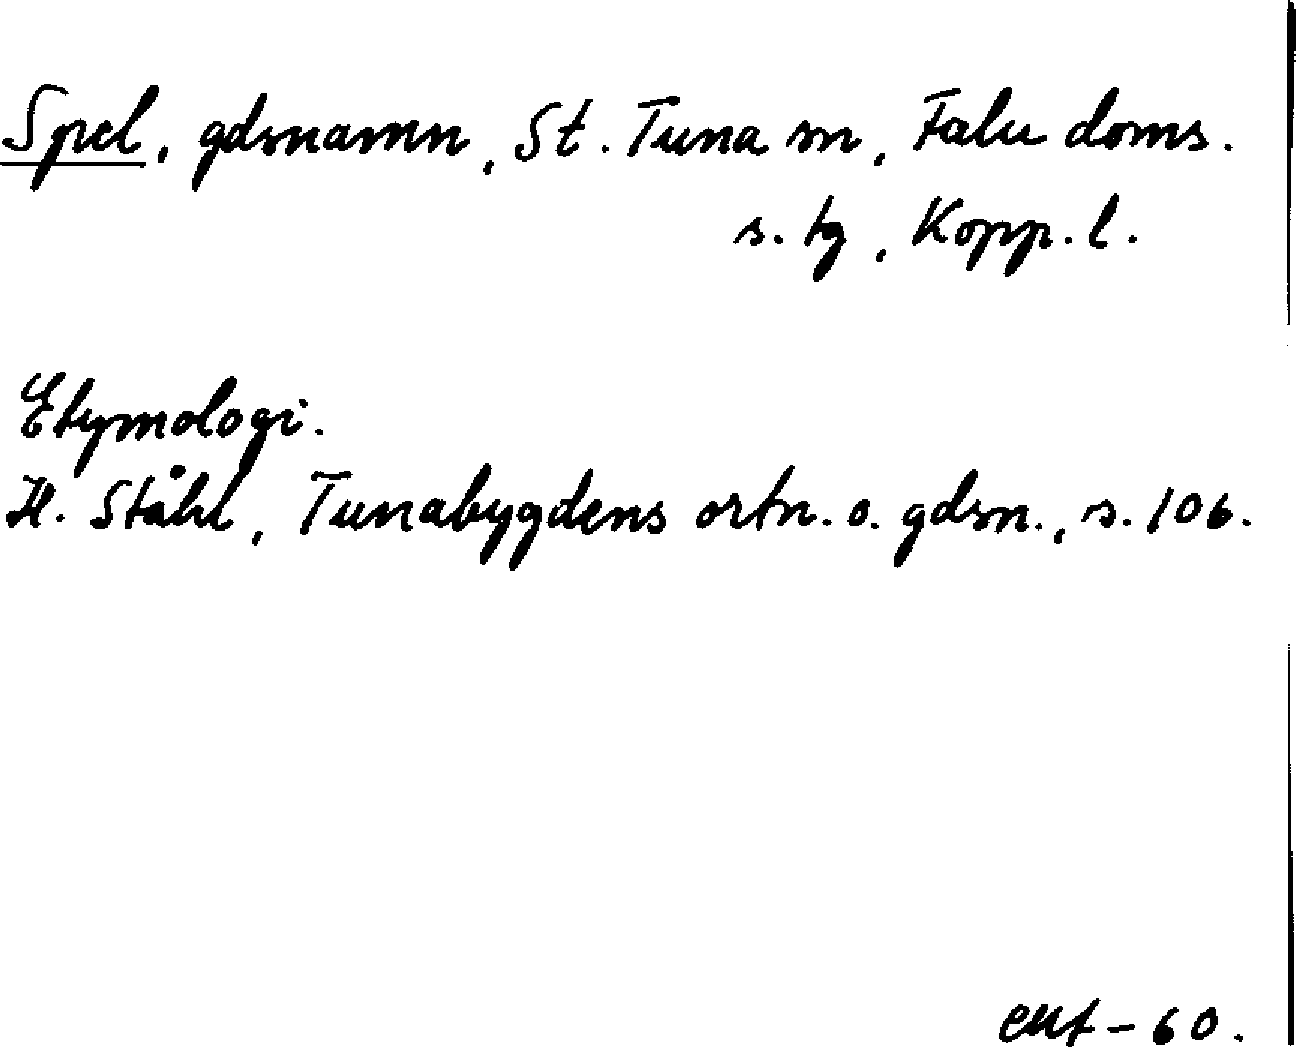 Spel, gdsnamn, St. Tuna sn, Falu doms.
s. tg, Kopp. l.
Etymologi.
H. Ståhl, Tunabygdens ortn. o. gdsn., s. 106.
-60.